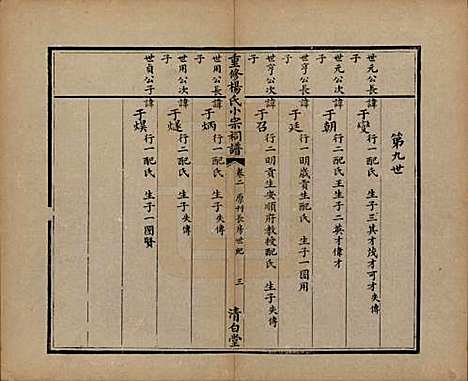 第九世
世元公長子
諱于變 行一配氏 生子三其才茂才可才失傳
世元公次子
諱于朝 行二配氏王生子二英才偉才
世亨公長子
諱于廷 行一明歲貢生配氏 生子一國用
世亨公次子
諱于召 行二明貢生安順府教授配氏 生子失傳
重修楊氏小宗祠譜 卷二 原刊長房世紀 三 清白堂
世用公長子
諱于炳 行一配氏 生子失傳
世用公次子
諱于 行二配氏 生子失傳
世貞公子
諱于 行一配氏 生子一國賢